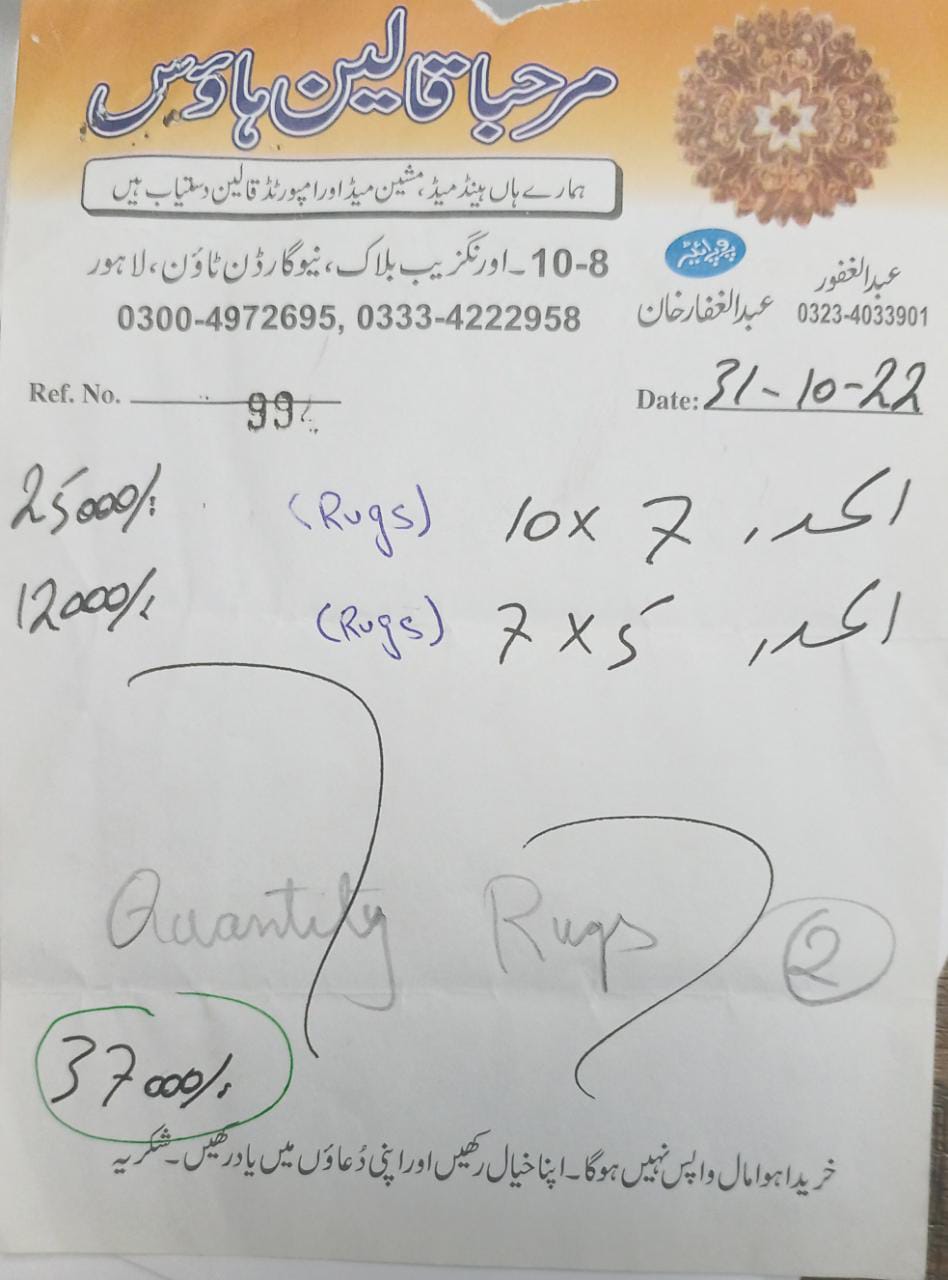 مرحبا قالین ہاؤس
ہمارے ہاں ہینڈ میڈ، مشین میڈ اور امپورٹڈ قالین دستیاب ہیں
10-8۔اورنگزیب بلاک، نیو گارڈن ٹاؤن، لاہور
0300-4972695, 0333-4222958
پروپرائیٹر
عبدالغفور
0323-4033901
عبدالغفار خان
Ref. No. 99
Date: 31-10-22
10 x 7 (Rugs) 25000/-
7 x 5 (Rugs) 12000/-
Quantity Rugs 2
37000/-
خریدا ہوا مال واپس نہیں ہوگا۔ اپنا خیال رکھیں اور اپنی دُعاؤں میں یاد رکھیں۔ شکریہ